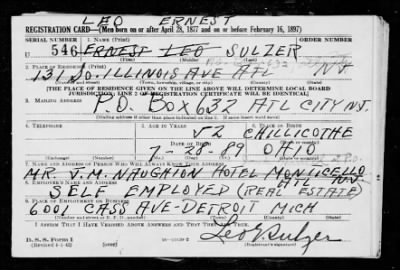 LEO ERNEST
REGISTRATION CARD—(Men born on or after April 28, 1877 and on or before February 16, 1897)
SERIAL NUMBER 1. NAME (Print) ORDER NUMBER
U 546 ERNEST LEO SULZER
(First) (Middle) (Last)
2. PLACE OF RESIDENCE (Print)
131 SO. ILLINOIS AVE ATL N.J.
(THE PLACE OF RESIDENCE GIVEN ON THE LINE ABOVE WILL DETERMINE LOCAL BOARD
JURISDICTION; LINE 2 OF REGISTRATION CERTIFICATE WILL BE IDENTICAL)
3. MAILING ADDRESS
P.O. BOX 632 ATL CITY N.J.
(Mailing address if other than place indicated on line 2. If same insert word same)
4. TELEPHONE 5. AGE IN YEARS 6. PLACE OF BIRTH
52 CHILLICOTHE
DATE OF BIRTH
7-28-89 OHIO
7. NAME AND ADDRESS OF PERSON WHO WILL ALWAYS KNOW YOUR ADDRESS
MR. J. M. NAUGHION HOTEL MONTICELLO
8. EMPLOYER'S NAME AND ADDRESS ATL
SELF EMPLOYED (REAL ESTATE)
9. PLACE OF EMPLOYMENT OR BUSINESS
6001 CASS AVE-DETROIT MICH
I AFFIRM THAT I HAVE VERIFIED ABOVE ANSWERS AND THAT THEY ARE TRUE.
D. S. S. Form 1
(Revised 4-1-42)
Leo E Sulzer